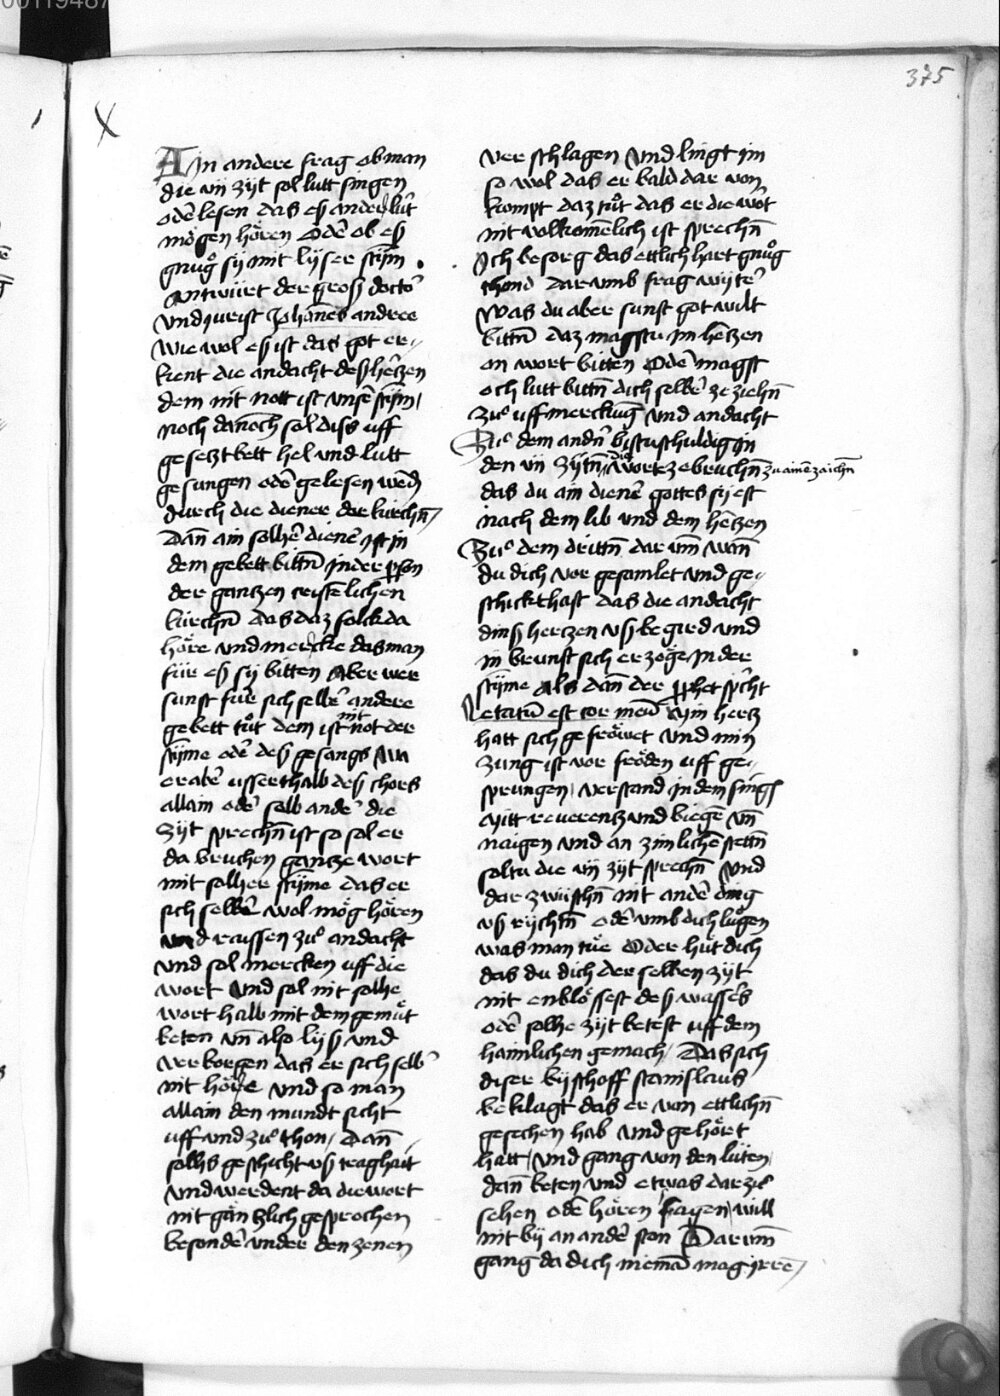 00119487
375
Ain andere frag ob man
die vij zyt sol lutt singen
oder lesen das es ander lüt
mögen hören Oder ob es
gnůg sy mit lyser stim̄
Antwürt der gros doctor
vnd jurist Johan̄es andree
Wie wol es ist das got er-
kent die andacht des herczen
dem nit nott ist vnser stim̄
noch dan̄och sol diss uff
gesetzt bett hel vnd lutt
gesungen oder gelesen werden
durch die diener der kirchn̄
Dan̄ ain solher diener ist in
dem gebett bittn̄ in der pson
der gantzen cristelichen
kirchn̄ das daz folck da
höre vnd mercke das man
für es sy bitten Aber wer
sunst für sich selber andere
gebett tůt dem ist nit not der
stim̄e oder des gesangs Wa
er aber usserthalb des chors
allain oder selb ander die
Zyt sprechn̄ ist so sol er
da bruchen gantze wort
mit solher stim̄e das er
sich selber wol mög hören
vnd raissen zů andacht
vnd sol mercken uff die
wort Vnd sol nit solhe
wort halb mit dem gemüt
beten vn̄ also lys vnd
verborgen das er sich selb
nit höre Vnd so man
allain den mundt sicht
uff vnd zů thon / Dan̄
solhs geschicht vs traghait
Vnd werdent da die wort
nit gäntzlich gesprochen
besonder vnder den zenen
verschlagen Vnd lingt im
so wol das er bald dar von
kumpt daz tůt das er die wort
nit volkom̄elich ist sprechn̄
Ich besorg das ettlich hart gnůg
thond Dar vmb frag wyter
Was du aber sunst got wilt
bittn̄ daz magstu im herczen
on wort bitten Oder magst
och lutt bittn̄ dich selber ze ziehn̄
Zů uff merckung vnd andacht
Zů dem andn̄ bistu schuldig in
den vij Zytn̄ die wort ze bruchn̄ zu aine zaichn̄
das du ain diener gottes syest
nach dem lib vnd dem herczen
Zů dem drittn̄ dar vm̄ wan̄
du dich vor gesamlet vnd ge-
schickt hast das die andacht
dins herczen vs begird vnd
in brunst sich erzöge In der
stim̄e Als dan̄ der pphet spricht
Letatū est cor meū Min hertz
hatt sich gefröwet vnd min
Zung ist vor fröden uff ge-
sprungen / verstand in dem singē
Mitt reverentz vnd biegē vn̄
naigen vnd an zimlichē stettn̄
soltu die vij zyt sprechn̄ Vnd
dar zwüschn̄ nit ander ding
vs rychtn̄ oder vmb dich lůgen
was man tüe Oder hüt dich
das du dich der selben zyt
nit enblössest des wassers
oder solhe zyt betest uff dem
haimlichen gemach / Das sich
diser byschoff stanislaus
beklagt das er von ettlichn̄
gesechen hab vnd gehört
hatt / Vnd gang von den lüten
dan̄ beten vnd etwas dar zů
sehen oder hören sagen / will
nit by an ander ston Darum̄
gang da dich nieman mag irre